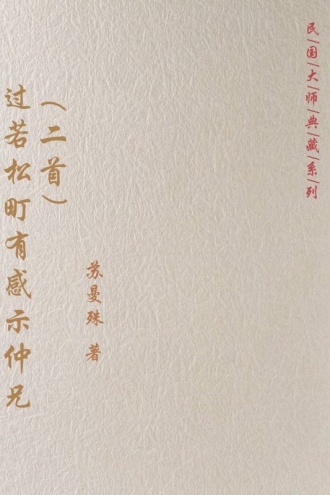 民国大师典藏系列
苏曼殊 著
过若松町有感示仲兄
（二首）